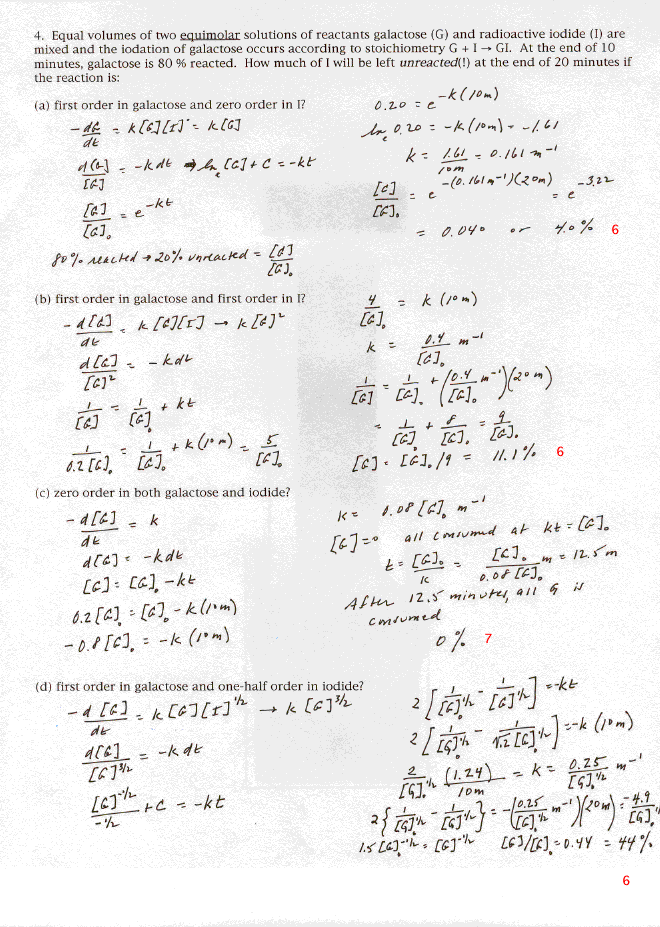 4. Equal volumes of two equimolar solutions of reactants galactose (G) and radioactive iodide (I) are
mixed and the iodation of galactose occurs according to stoichiometry G + I → GI. At the end of 10
minutes, galactose is 80 % reacted. How much of I will be left unreacted(!) at the end of 20 minutes if
the reaction is:
(a) first order in galactose and zero order in I?
-dG/dt = k[G][I]° = k[G]
d[G]/[G] = -kdt → lnₑ[G] + C = -kt
[G]/[G]₀ = e^-kt
80% reacted → 20% unreacted = [G]/[G]₀
0.20 = e^-k(10m)
lnₑ 0.20 = -k(10m) = -1.61
k = 1.61/10m = 0.161 m⁻¹
[G]/[G]₀ = e^-(0.161m⁻¹)(20m) = e^-3.22
= 0.040 or 4.0% 6
(b) first order in galactose and first order in I?
-d[G]/dt = k[G][I] → k[G]²
d[G]/[G]² = -kdt
1/[G] = 1/[G]₀ + kt
1/0.2[G]₀ = 1/[G]₀ + k(10m) = 5/[G]₀
4/[G]₀ = k(10m)
k = 0.4/[G]₀ m⁻¹
1/[G] = 1/[G]₀ + (0.4/[G]₀ m⁻¹)(20m)
= 1/[G]₀ + 8/[G]₀ = 9/[G]₀
[G] = [G]₀/9 = 11.1% 6
(c) zero order in both galactose and iodide?
-d[G]/dt = k
d[G] = -kdt
[G] = [G]₀ - kt
0.2[G]₀ = [G]₀ - k(10m)
-0.8[G]₀ = -k(10m)
k = 0.08[G]₀ m⁻¹
[G]=0 all consumed at kt = [G]₀
t = [G]₀/k = [G]₀/0.08[G]₀ m = 12.5m
After 12.5 minutes, all G is
consumed
0% 7
(d) first order in galactose and one-half order in iodide?
-d[G]/dt = k[G][I]^1/2 → k[G]^3/2
d[G]/[G]^3/2 = -kdt
[G]^-1/2/-1/2 + C = -kt
2[1/[G]₀^1/2 - 1/[G]^1/2] = -kt
2[1/[G]₀^1/2 - 1/√.2[G]₀^1/2] = -k(10m)
2/[G]₀^1/2 (1.24)/10m = k = 0.25/[G]₀^1/2 m⁻¹
2{1/[G]₀^1/2 - 1/[G]^1/2} = -(0.25/[G]₀^1/2 m⁻¹)(20m) = -4.9/[G]₀^1/2
1.5[G]₀^-1/2 = [G]^-1/2 [G]/[G]₀ = 0.44 = 44%
6